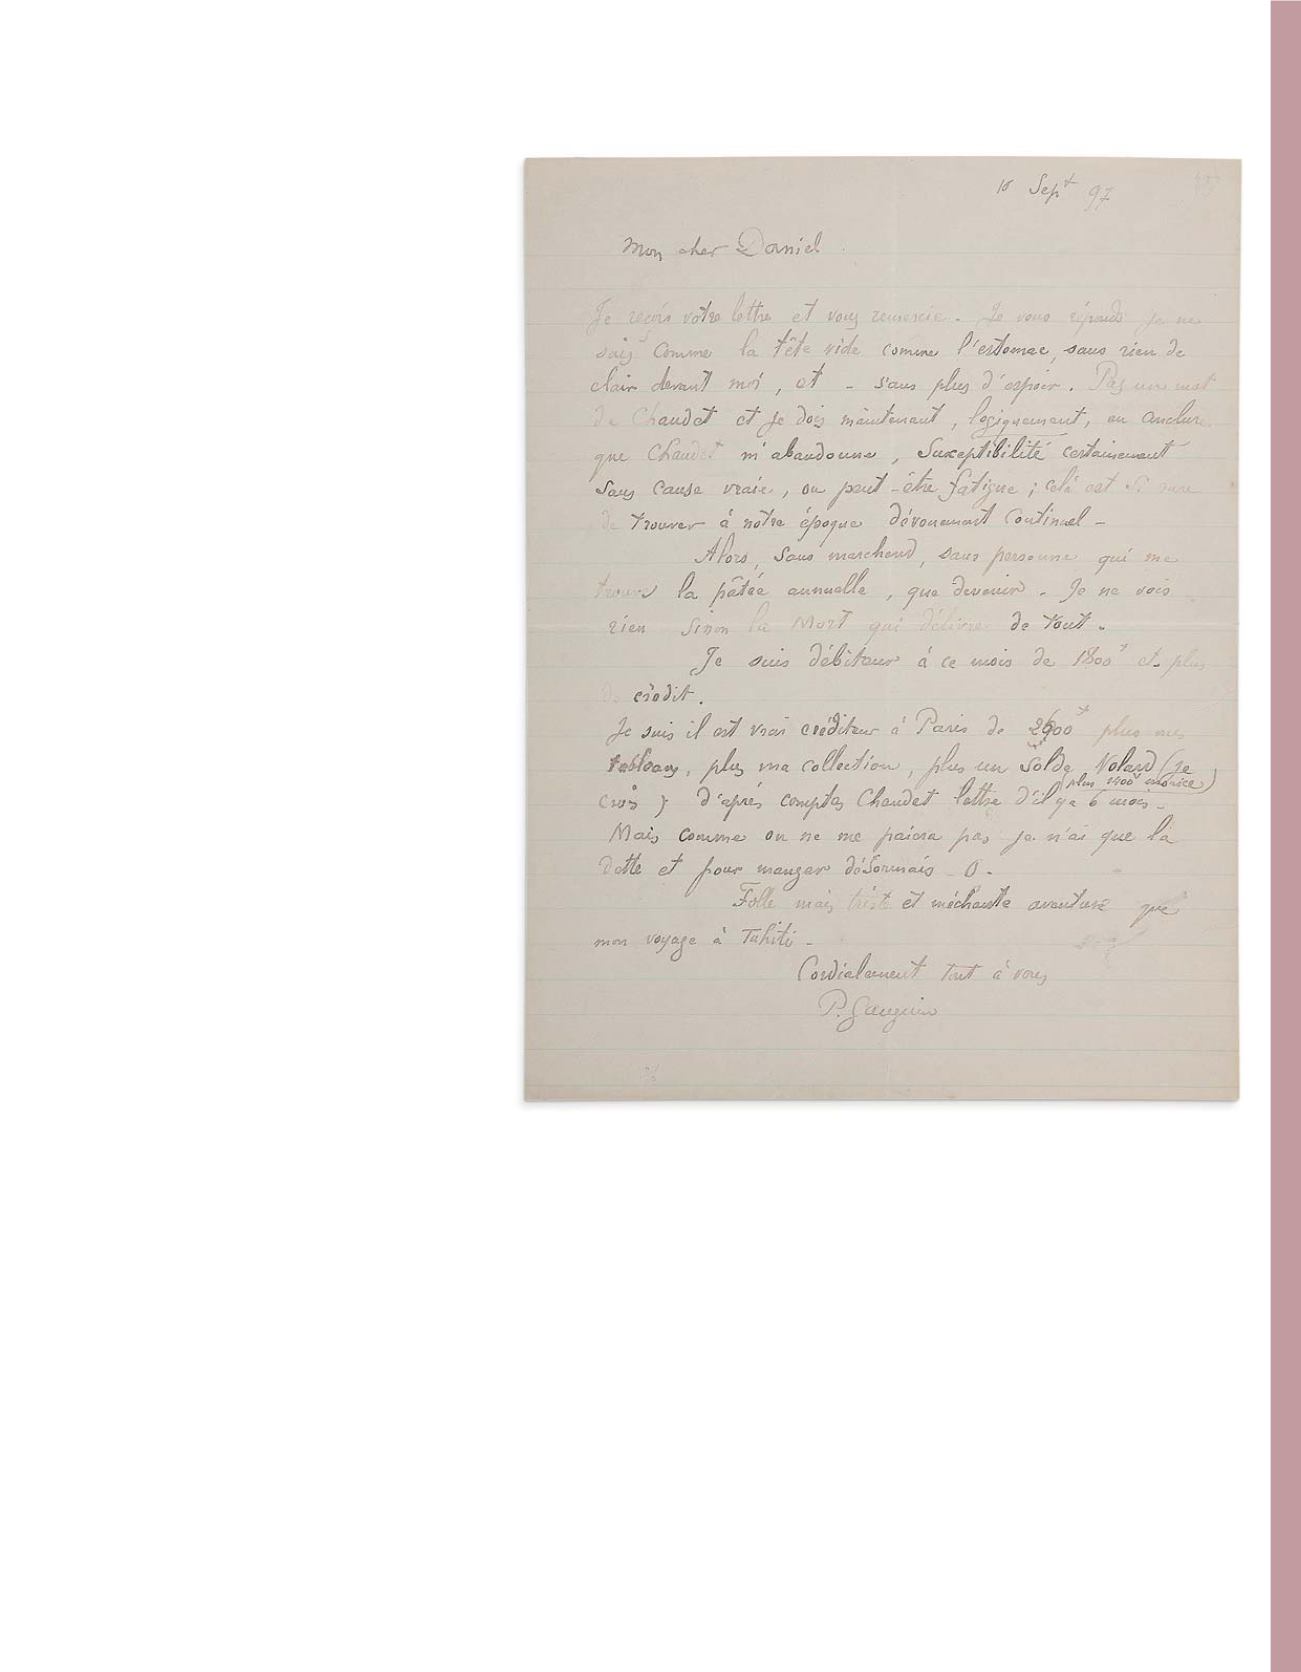 10 Sept 97
Mon cher Daniel
Je reçois votre lettre et vous remercie. Je vous réponds je ne
sais comme la tête vide comme l'estomac, sans rien de
clair devant moi, et - sans plus d'espoir. Pas un mot
de Chaudet et je dois maintenant, logiquement, en conclure
que Chaudet m'abandonne, Susceptibilité certainement
sans cause vraie, ou peut-être fatigue ; celà est si rare
de trouver à notre époque dévouement continuel -
Alors, sans marchand, sans personne qui me
trouve la pâtée annuelle, que devenir. Je ne vois
rien sinon la Mort qui délivre de tout.
Je suis débiteur à ce mois de 1800f et plus
de crédit.
Je suis il est vrai créditeur à Paris de plus mes
tableaux, plus ma collection, plus un solde Volard (je
plus morice)
crois) d'après comptes Chaudet lettre d'il y a 6 mois -
Mais comme on ne me paiera pas je n'ai que la
dette et pour manger désormais 0.
Folle mais triste et méchante aventure que
mon voyage à Tahiti -
Cordialement tout à vous
P. Gauguin